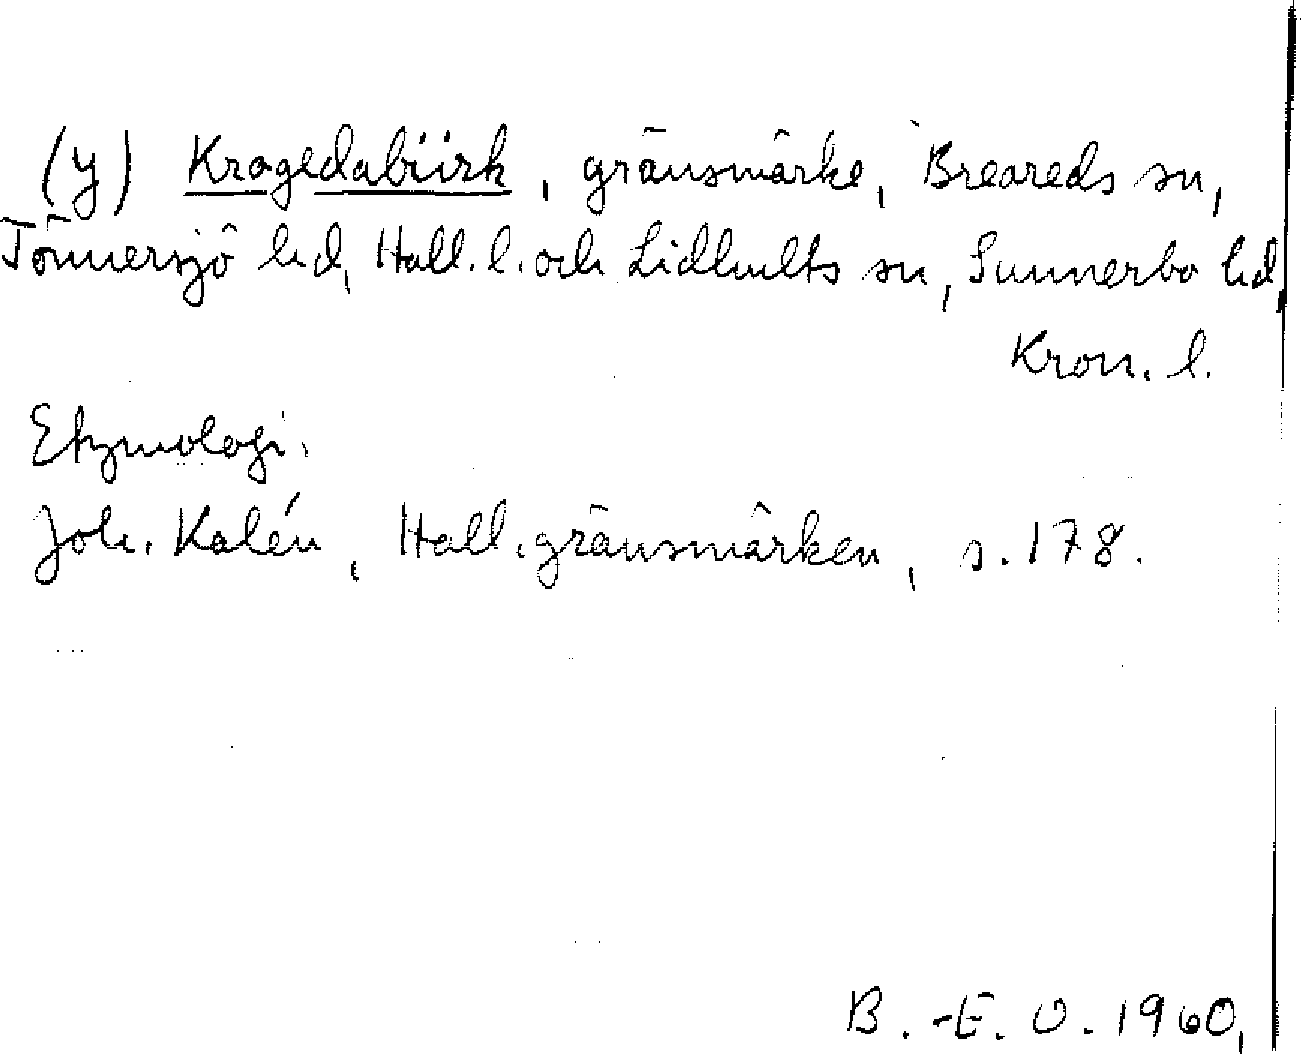 (y) Kragedabiirk, gränsmärke, Breareds sn,
Tönnersjö hd, Hall. l. och Lidhults sn, Sunnerbo hd,
Kron. l.
Etymologi.
Joh. Kalén, Hall. gränsmärken, s. 178.
B.-E. O. 1960,